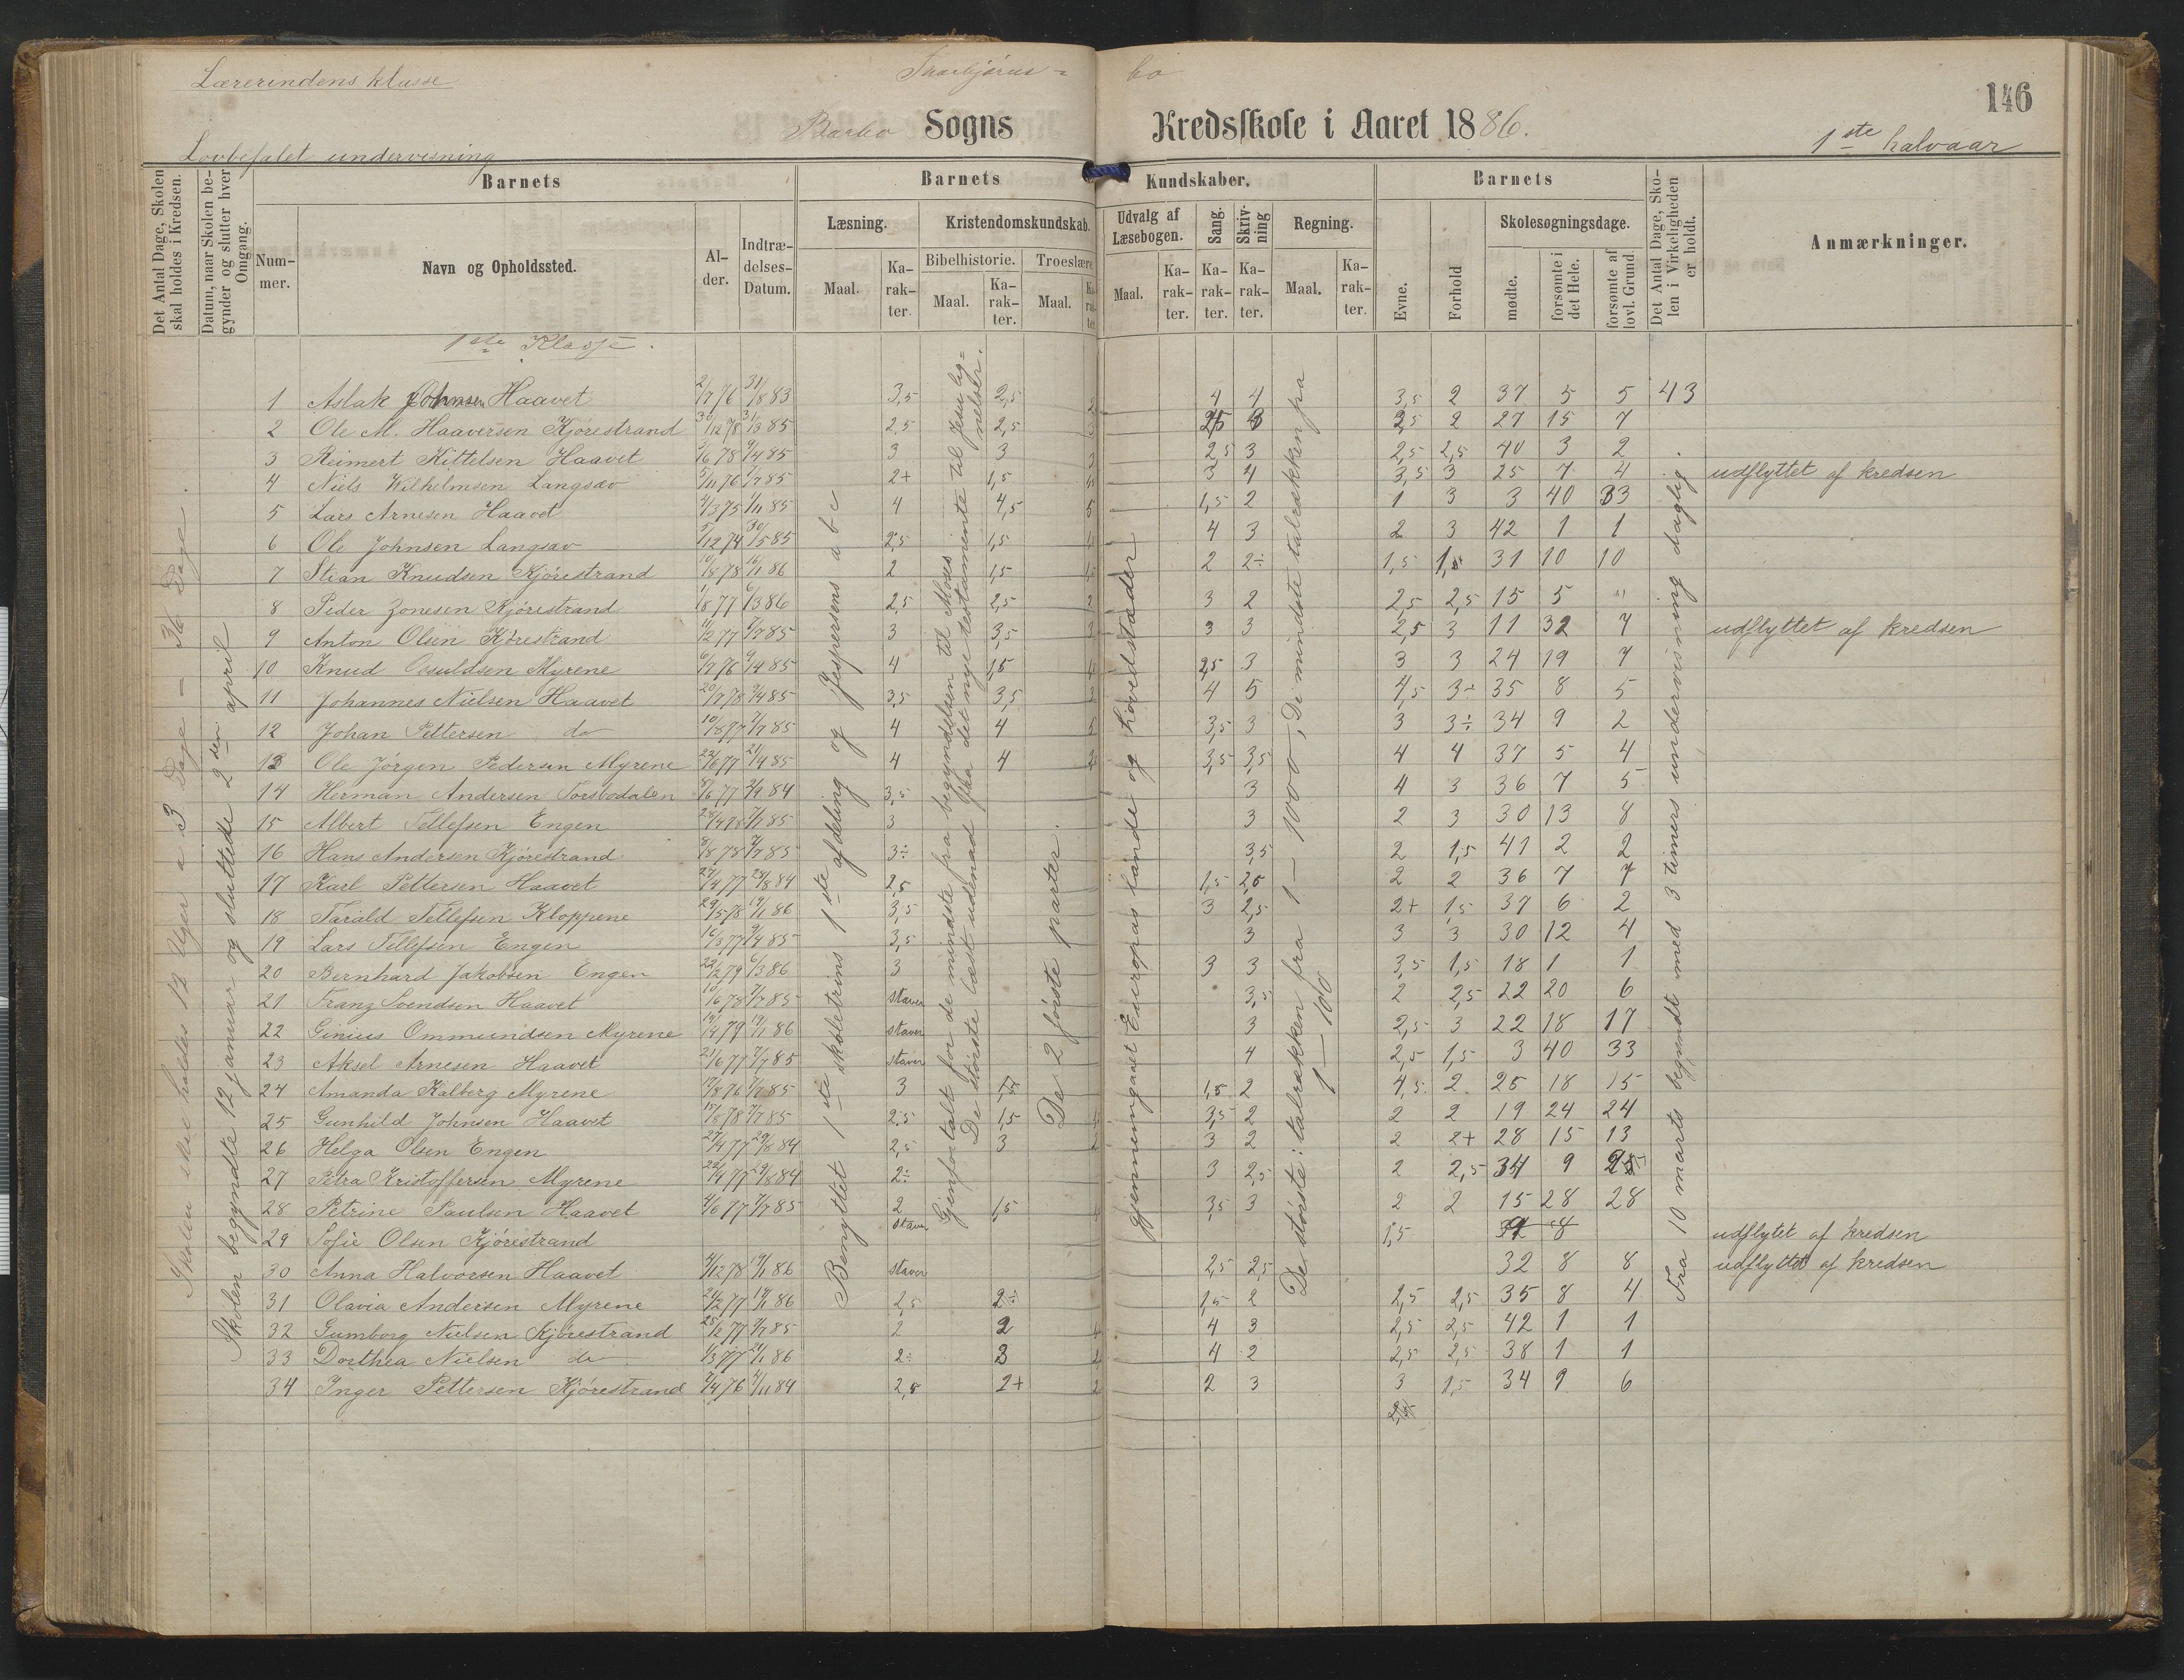 Lærerindens klasse
bo
146
Barbo Sogns Kredsskole i Aaret 1886.
1ste halvaar
Lovbefalet undervisning
Det Antal Dage, Skolen skal holdes i Kredsen.
Datum, naar Skolen begynder og slutter hver Omgang.
Barnets
Barnets Kundskaber.
Barnets
Det Antal Dage, Skolen i Virkeligheden er holdt.
Anmærkninger.
Nummer.
Navn og Opholdssted.
Alder.
Indtrædelses-Datum.
Læsning.
Kristendomskundskab.
Udvalg af Læsebogen.
Sang.
Skrivning
Regning.
Evne.
Forhold
Skolesøgningsdage.
Bibelhistorie.
Troeslære
Maal.
Karakter.
Maal.
Karakter.
Maal.
Karakter
Maal.
Karakter.
Karakter.
Karakter.
Maal.
Karakter.
mødte.
forsømte i det Hele.
forsømte af lovl. Grund.
1ste Klasse.
Skolen skal holdes 12 Uger a 3 Dage - 36 Dage.
Skolen begyndte 12 januar og sluttede 2den april
Benyttet 1ste skoletrins 1ste afdeling og Jespersens abc
Gjenfortalt for de mindste fra begyndelsen til Moses
De største læst udenad fra det nye testamente til Jesu lignelser.
De 2 første parter.
gjennemgaaet Europas lande og hovedstæder
De største: talrækken fra 1 - 1000, De mindste talrækken fra 1 - 100
Fra 10 marts begyndt med 3 timers undervisning daglig.
1 Aslak Johnsen Haavet 2/7 76 31/8 83 3,5 2,5 4 4 3,5 2 37 5 5 43
2 Ole M. Haaversen Kjörestrand 30/12 78 31/3 85 2,5 2,5 2,5 3 2,5 2 27 15 7
3 Reimert Kittelsen Haavet 3/6 78 9/4 85 3 3 2,5 3 2,5 2,5 40 3 2
4 Niels Wilhelmsen Langsæv 5/11 76 7/7 85 2+ 1,5 3 4 3,5 3 25 7 4 udflyttet af kredsen
5 Lars Arnesen Haavet 4/3 75 1/11 85 4 4,5 1,5 2 1 3 3 40 33
6 Ole Johnsen Langsæv 5/12 74 30/5 85 2,5 1,5 4 3 2 3 42 1 1
7 Stian Knudsen Kjörestrand 10/8 78 16/1 86 2 1,5 2 2÷ 1,5 1,5 31 10 10
8 Peder Zonesen Kjörestrand 1/8 77 6/3 86 2,5 2,5 3 2 2,5 2,5 15 5 "
9 Anton Olsen Kjörestrand 11/12 77 7/7 85 3 3,5 3 3 2,5 3 11 32 7 udflyttet af kredsen
10 Knud Osuldsen Myrene 6/7 76 9/4 85 4 1,5 2,5 3 3 3 24 19 7
11 Johannes Nielsen Haavet 20/7 78 9/4 85 3,5 3,5 4 5 4,5 3÷ 35 8 5
12 Johan Pettersen do 10/8 77 7/7 85 4 4 3,5 3 3 3÷ 34 9 2
13 Ole Jörgen Pedersen Myrene 22/6 77 21/4 85 4 4 3,5 3,5 4 4 37 5 4
14 Herman Andersen Torsbodalen 8/6 77 84 3,5 3 4 3 36 7 5
15 Albert Tellefsen Engen 28/4 78 7/7 85 3 3 2 3 30 13 8
16 Hans Andersen Kjörestrand 8/8 78 7/7 85 3÷ 3,5 2 1,5 41 2 2
17 Karl Pettersen Haavet 27/4 77 29/8 84 2,5 1,5 2,5 2 2 36 7 7
18 Tarald Tellefsen Kloppene 29/5 78 19/1 86 3,5 3 2,5 2+ 1,5 37 6 2
19 Lars Tellefsen Engen 16/3 77 9/4 85 3,5 3 3 3 30 12 4
20 Bernhard Jakobsen Engen 22/2 79 6/3 86 3 3 3 3,5 1,5 18 1 1
21 Franz Svendsen Haavet 10/6 78 7/7 85 staver 3,5 2 2,5 22 20 6
22 Ginius Ommundsen Myrene 14/4 79 19/1 86 staver 3 2,5 3 22 18 17
23 Aksel Arnesen Haavet 21/6 77 7/7 85 staver 4 2,5 1,5 3 40 33
24 Amanda Kalberg Myrene 17/8 76 7/7 85 3 1,5 2 4,5 2 25 18 15
25 Gunhild Johnsen Haavet 15/8 78 7/7 85 2,5 1,5 3,5 2 2 2 19 24 24
26 Helga Olsen Engen 27/4 77 29/8 84 2,5 3 3 2 2 2+ 28 15 13
27 Petra Kristoffersen Myrene 22/4 77 29/8 84 2÷ 3 2,5 2 2,5 34 9
28 Petrine Paulsen Haavet 4/6 77 7/7 85 2 1,5 3,5 3 2 2 15 28 28
29 Sofie Olsen Kjörestrand staver 1,5 8 udflytet af kredsen
30 Anna Halvorsen Haavet 4/12 78 19/1 86 staver 2,5 2,5 32 8 8 udflyttet af kredsen
31 Olavia Andersen Myrene 21/2 77 19/1 86 2,5 2÷ 1,5 2 2,5 2,5 35 8 4
32 Gumborg Nielsen Kjörestrand 25/2 77 7/7 85 2 2 4 3 2,5 2,5 42 1 1
33 Dorthea Nielsen do 1/3 77 86 2÷ 3 4 2 2,5 2,5 38 1 1
34 Inger Pettersen Kjörestrand 7/4 76 4/11 84 2,5 2+ 2 3 3 1,5 34 9 6